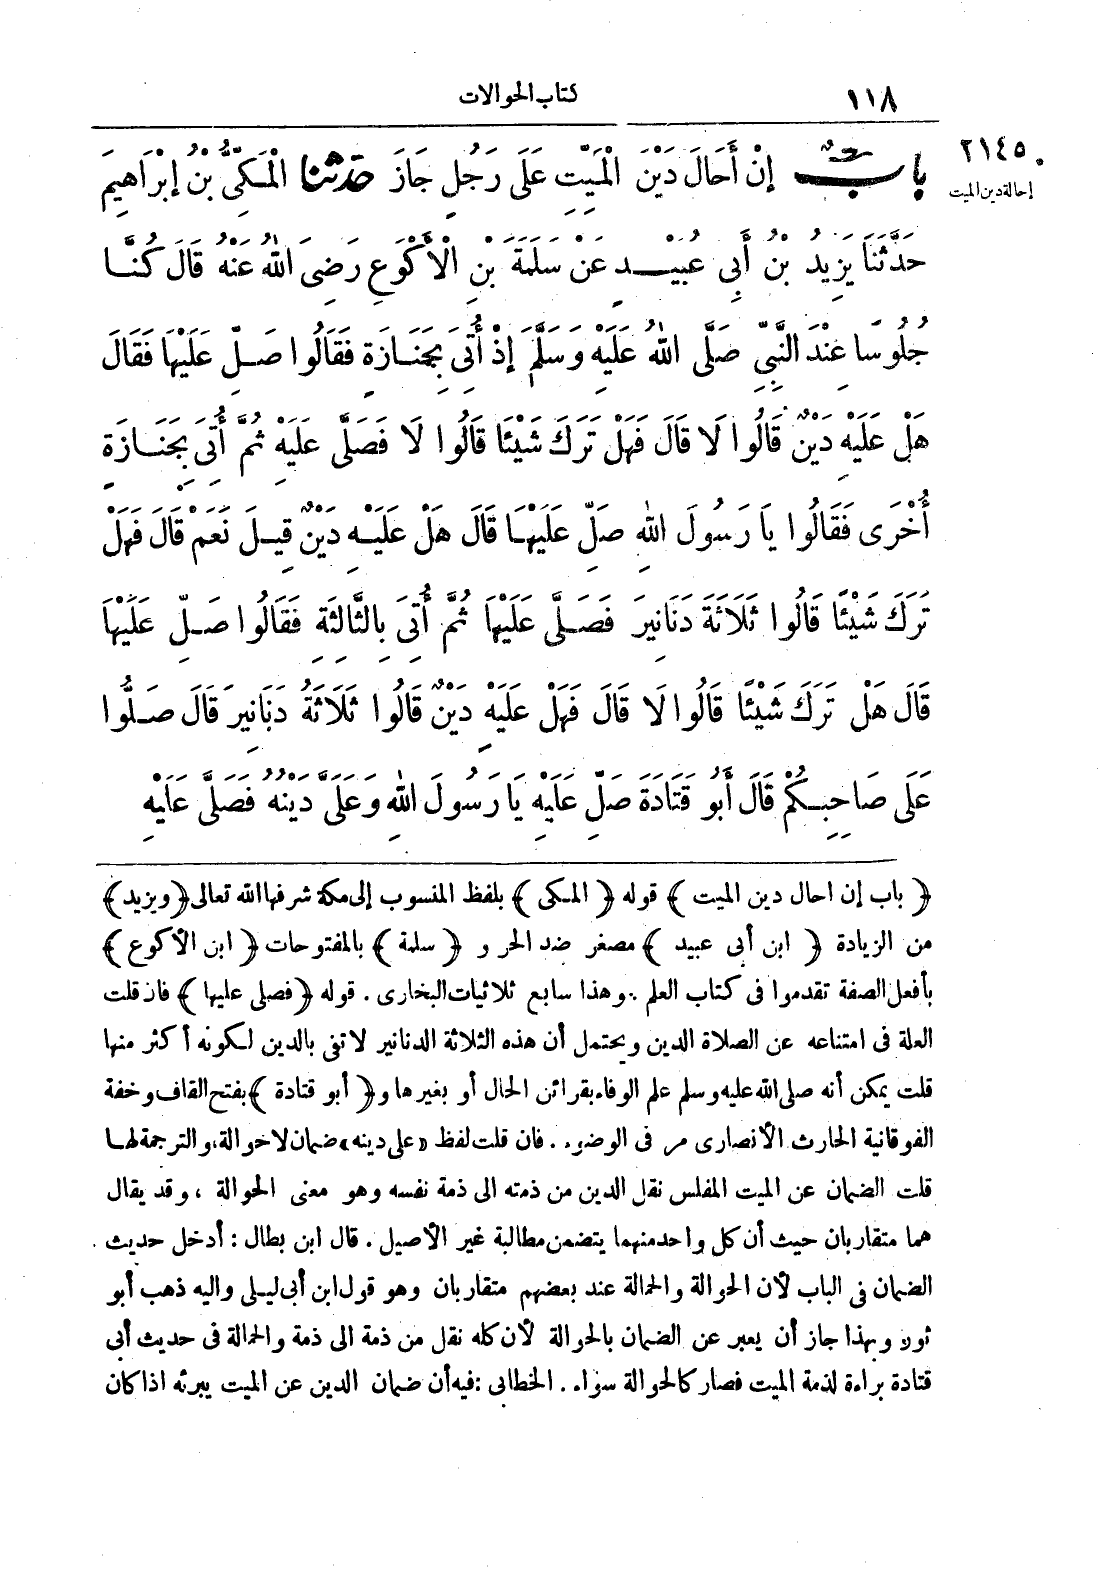 ١١٨
كتاب الحوالات
٢١٤٥
إحالة دين الميت
بابٌ إِنْ أَحَالَ دَيْنَ الْمَيِّتِ عَلَى رَجُلٍ جَازَ حدثنا الْمَكِّىُّ بْنُ إِبْرَاهِيمَ
حَدَّثَنَا يَزِيدُ بْنُ أَبِى عُبَيْدٍ عَنْ سَلَمَةَ بْنِ الْأَكْوَعِ رَضِىَ اللهُ عَنْهُ قَالَ كُنَّا
جُلُوسًا عِنْدَ النَّبِىِّ صَلَّى اللهُ عَلَيْهِ وَسَلَّمَ إِذْ أُتِىَ بِجَنَازَةٍ فَقَالُوا صَلِّ عَلَيْهَا فَقَالَ
هَلْ عَلَيْهِ دَيْنٌ قَالُوا لَا قَالَ فَهَلْ تَرَكَ شَيْئًا قَالُوا لَا فَصَلَّى عَلَيْهِ ثُمَّ أُتِىَ بِجَنَازَةٍ
أُخْرَى فَقَالُوا يَا رَسُولَ اللهِ صَلِّ عَلَيْهَا قَالَ هَلْ عَلَيْهِ دَيْنٌ قِيلَ نَعَمْ قَالَ فَهَلْ
تَرَكَ شَيْئًا قَالُوا ثَلَاثَةَ دَنَانِيرَ فَصَلَّى عَلَيْهَا ثُمَّ أُتِىَ بِالثَّالِثَةِ فَقَالُوا صَلِّ عَلَيْهَا
قَالَ هَلْ تَرَكَ شَيْئًا قَالُوا لَا قَالَ فَهَلْ عَلَيْهِ دَيْنٌ قَالُوا ثَلَاثَةُ دَنَانِيرَ قَالَ صَلُّوا
عَلَى صَاحِبِكُمْ قَالَ أَبُو قَتَادَةَ صَلِّ عَلَيْهِ يَا رَسُولَ اللهِ وَعَلَىَّ دَيْنُهُ فَصَلَّى عَلَيْهِ
﴿ باب إن احال دين الميت ﴾ قوله ﴿ المكى ﴾ بلفظ المنسوب إلى مكة شرفها الله تعالى ﴿ ويزيد ﴾
من الزيادة ﴿ ابن أبى عبيد ﴾ مصغر ضد الحر و ﴿ سلمة ﴾ بالمفتوحات ﴿ ابن الأكوع ﴾
بأفعل الصفة تقدموا فى كتاب العلم . وهذا سابع ثلاثيات البخارى . قوله ﴿ فصلى عليها ﴾ فان قلت
العلة فى امتناعه عن الصلاة الدين ويحتمل أن هذه الثلاثة الدنانير لا تفى بالدين لكونه أكثر منها
قلت يمكن أنه صلى الله عليه وسلم علم الوفاء بقرائن الحال أو بغيرها و ﴿ أبو قتادة ﴾ بفتح القاف وخفة
الفوقانية الحارث الأنصارى مر فى الوضوء . فان قلت لفظ «على دينه» ضمان لا حوالة، والترجمة لها
قلت الضمان عن الميت المفلس نقل الدين من ذمته الى ذمة نفسه وهو معنى الحوالة ، وقد يقال
هما متقاربان حيث أن كل واحد منهما يتضمن مطالبة غير الأصيل . قال ابن بطال : أدخل حديث
الضمان فى الباب لأن الحوالة والحمالة عند بعضهم متقاربان وهو قول ابن أبى ليلى واليه ذهب أبو
ثور وبهذا جاز أن يعبر عن الضمان بالحوالة لأن كله نقل من ذمة الى ذمة والحمالة فى حديث أبى
قتادة براءة لذمة الميت فصار كالحوالة سواء . الخطابى : فيه أن ضمان الدين عن الميت يبرئه اذا كان